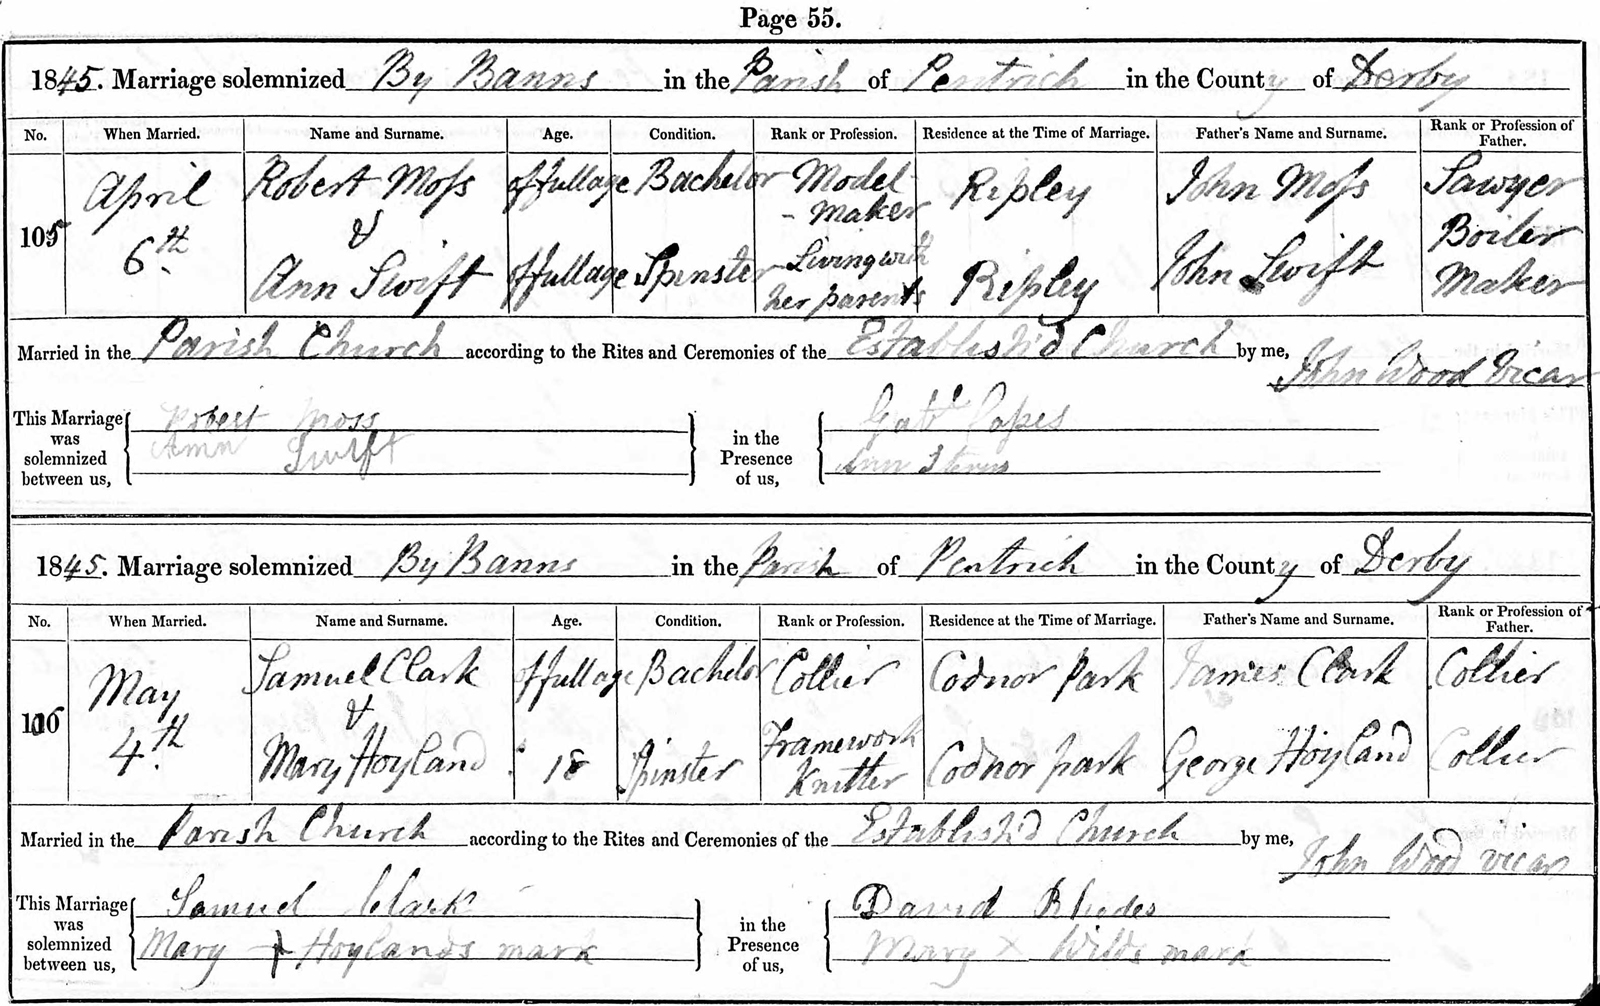 Page 55.
1845. Marriage solemnized By Banns in the Parish of Pentrich in the County of Derby
No. When Married. Name and Surname. Age. Condition. Rank or Profession. Residence at the Time of Marriage. Father's Name and Surname. Rank or Profession of Father.
105 April 6th Robert Moss of full age Bachelor Model-maker Ripley John Moss Sawyer
&
Ann Swift of full age Spinster Living with her parents Ripley John Swift Boiler Maker
Married in the Parish Church according to the Rites and Ceremonies of the Establish'd Church by me, John Wood Vicar
This Marriage was solemnized between us, Robert Moss in the Presence of us,
Ann Swift Ann
1845. Marriage solemnized By Banns in the Parish of Pentrich in the County of Derby
No. When Married. Name and Surname. Age. Condition. Rank or Profession. Residence at the Time of Marriage. Father's Name and Surname. Rank or Profession of Father.
May 4th Samuel Clark of full age Bachelor Collier Codnor Park James Clark Collier
&
Mary Hoyland 18 Spinster Framework Knitter Codnor park George Hoyland Collier
Married in the Parish Church according to the Rites and Ceremonies of the Establish'd Church by me, John Wood vicar
This Marriage was solemnized between us, Samuel Clark in the Presence of us, David Rhodes
Mary + Hoylands mark Mary X Wilds mark